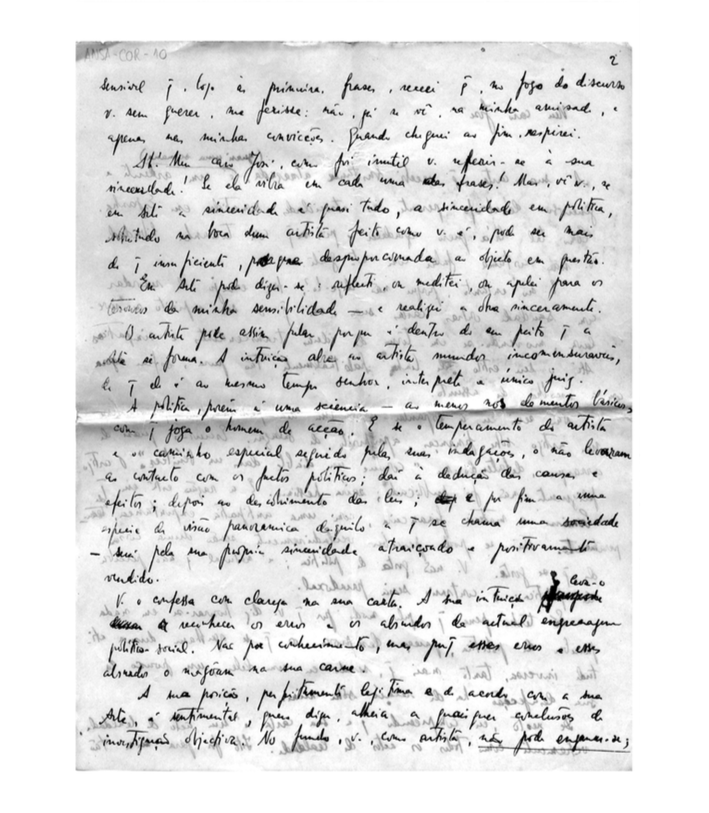 ANSA-COR-10
2
sensivel q̃, logo ás primeiras frases, receei q̃, no fogo do discurso
v. sem querer, me ferisse: não, já se vê, na minha amisade, e
apenas nas minhas convicções. Quando cheguei ao fim, respirei.
Ah! Meu caro José, como foi inutil v. referir-se à sua
sinceridade! Se ela vibra em cada uma das frases! Mas, vê v., se
em arte a sinceridade é quasi tudo, a sinceridade em politica,
sobretudo na boca dum artista feito como v. é, pode ser mais
do q̃ insuficiente, desproporcionada ao objeto em questão.
Em arte pode dizer-se: reflecti, ou meditei, ou apelei para os
tesouros da minha sensibilidade — e realizei a obra sinceramente.
O artista pode assim falar porque é dentro do seu peito q̃ a
Arte se forma. A intuição abre ao artista mundos incomensuraveis,
de q̃ ele é ao mesmo tempo senhor, interprete e único juiz.
A politica, porém é uma sciencia — ao menos nos elementos básicos,
com q̃ joga o homem de acção. E se o temperamento do artista
e o caminho especial seguido pelas suas indagações, o não levaram
ao contacto com os factos politicos; daí à dedução das causas e
efeitos; depois ao descobrimento das leis; e por fim a uma
especie de visão panoramica daquilo a q̃ se chama uma sociedade
— será pela sua propria sinceridade atraiçoado e positivamente
vendido.
V. o confessa com clareza na sua carta. A sua intuição leva-o
a reconhecer os erros e os absurdos da actual engrenagem
politico-social. Nao por conhecimento, mas porq̃ esses erros e esses
absurdos o magôam na sua carne.
A sua posição, perfeitamente legitima e de acordo com a sua
Arte, é sentimental, quero dizer, alheia a quaisquer conclusões de
investigação objectiva. No fundo, v., como artista, não pode enganar-se;